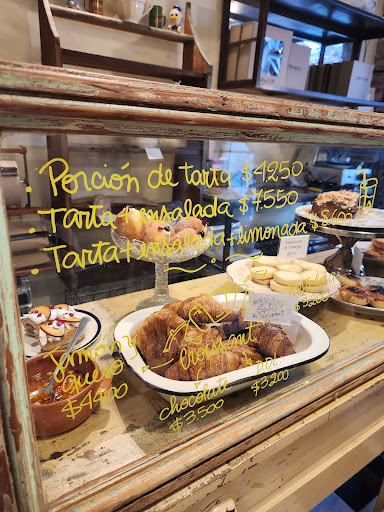 . Porción de tarta $4250
. Tarta + ensalada $7.550
. Tarta + ensalada + limonada $8.600
Jamón y
queso
$4400
Croissant
chocolate
$3.500
$3200